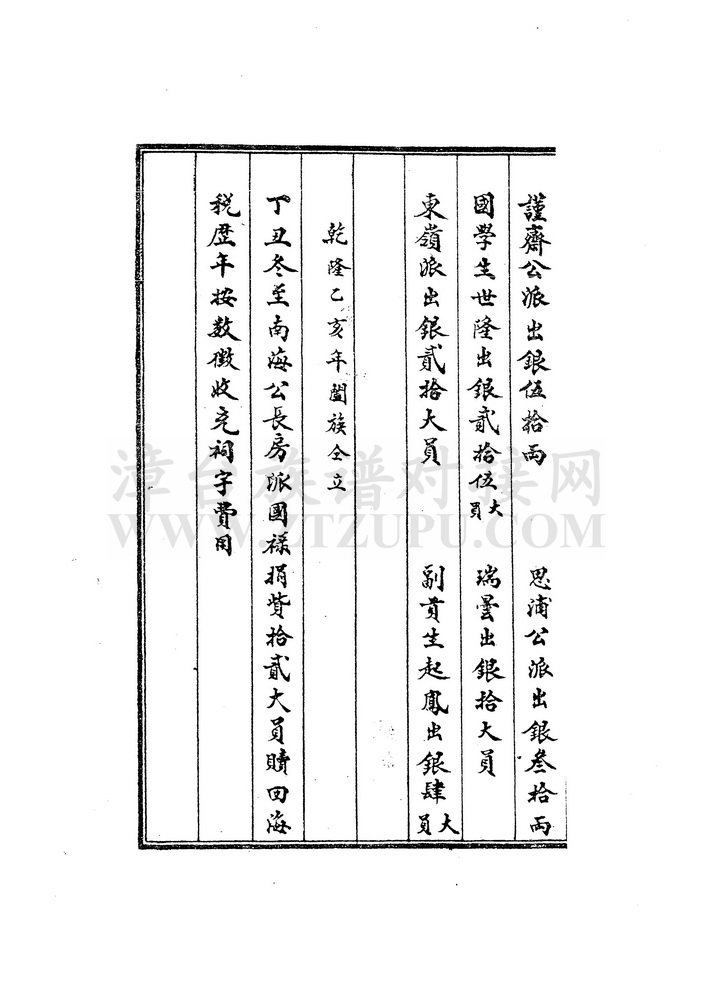 謹齋公派出銀伍拾両　思浦公派出銀叁拾両
國學生世隆出銀貳拾伍大員　瑞曇出銀拾大員
東嶺派出銀貳拾大員　副貢生起鳳出銀肆大員
乾隆乙亥年闔族仝立
丁丑冬至南海公長房派國祿捐貲拾貳大員贖回海
稅歷年按数徵收充祠宇費用
漳台族谱对接网
WWW.ZTZUPU.COM